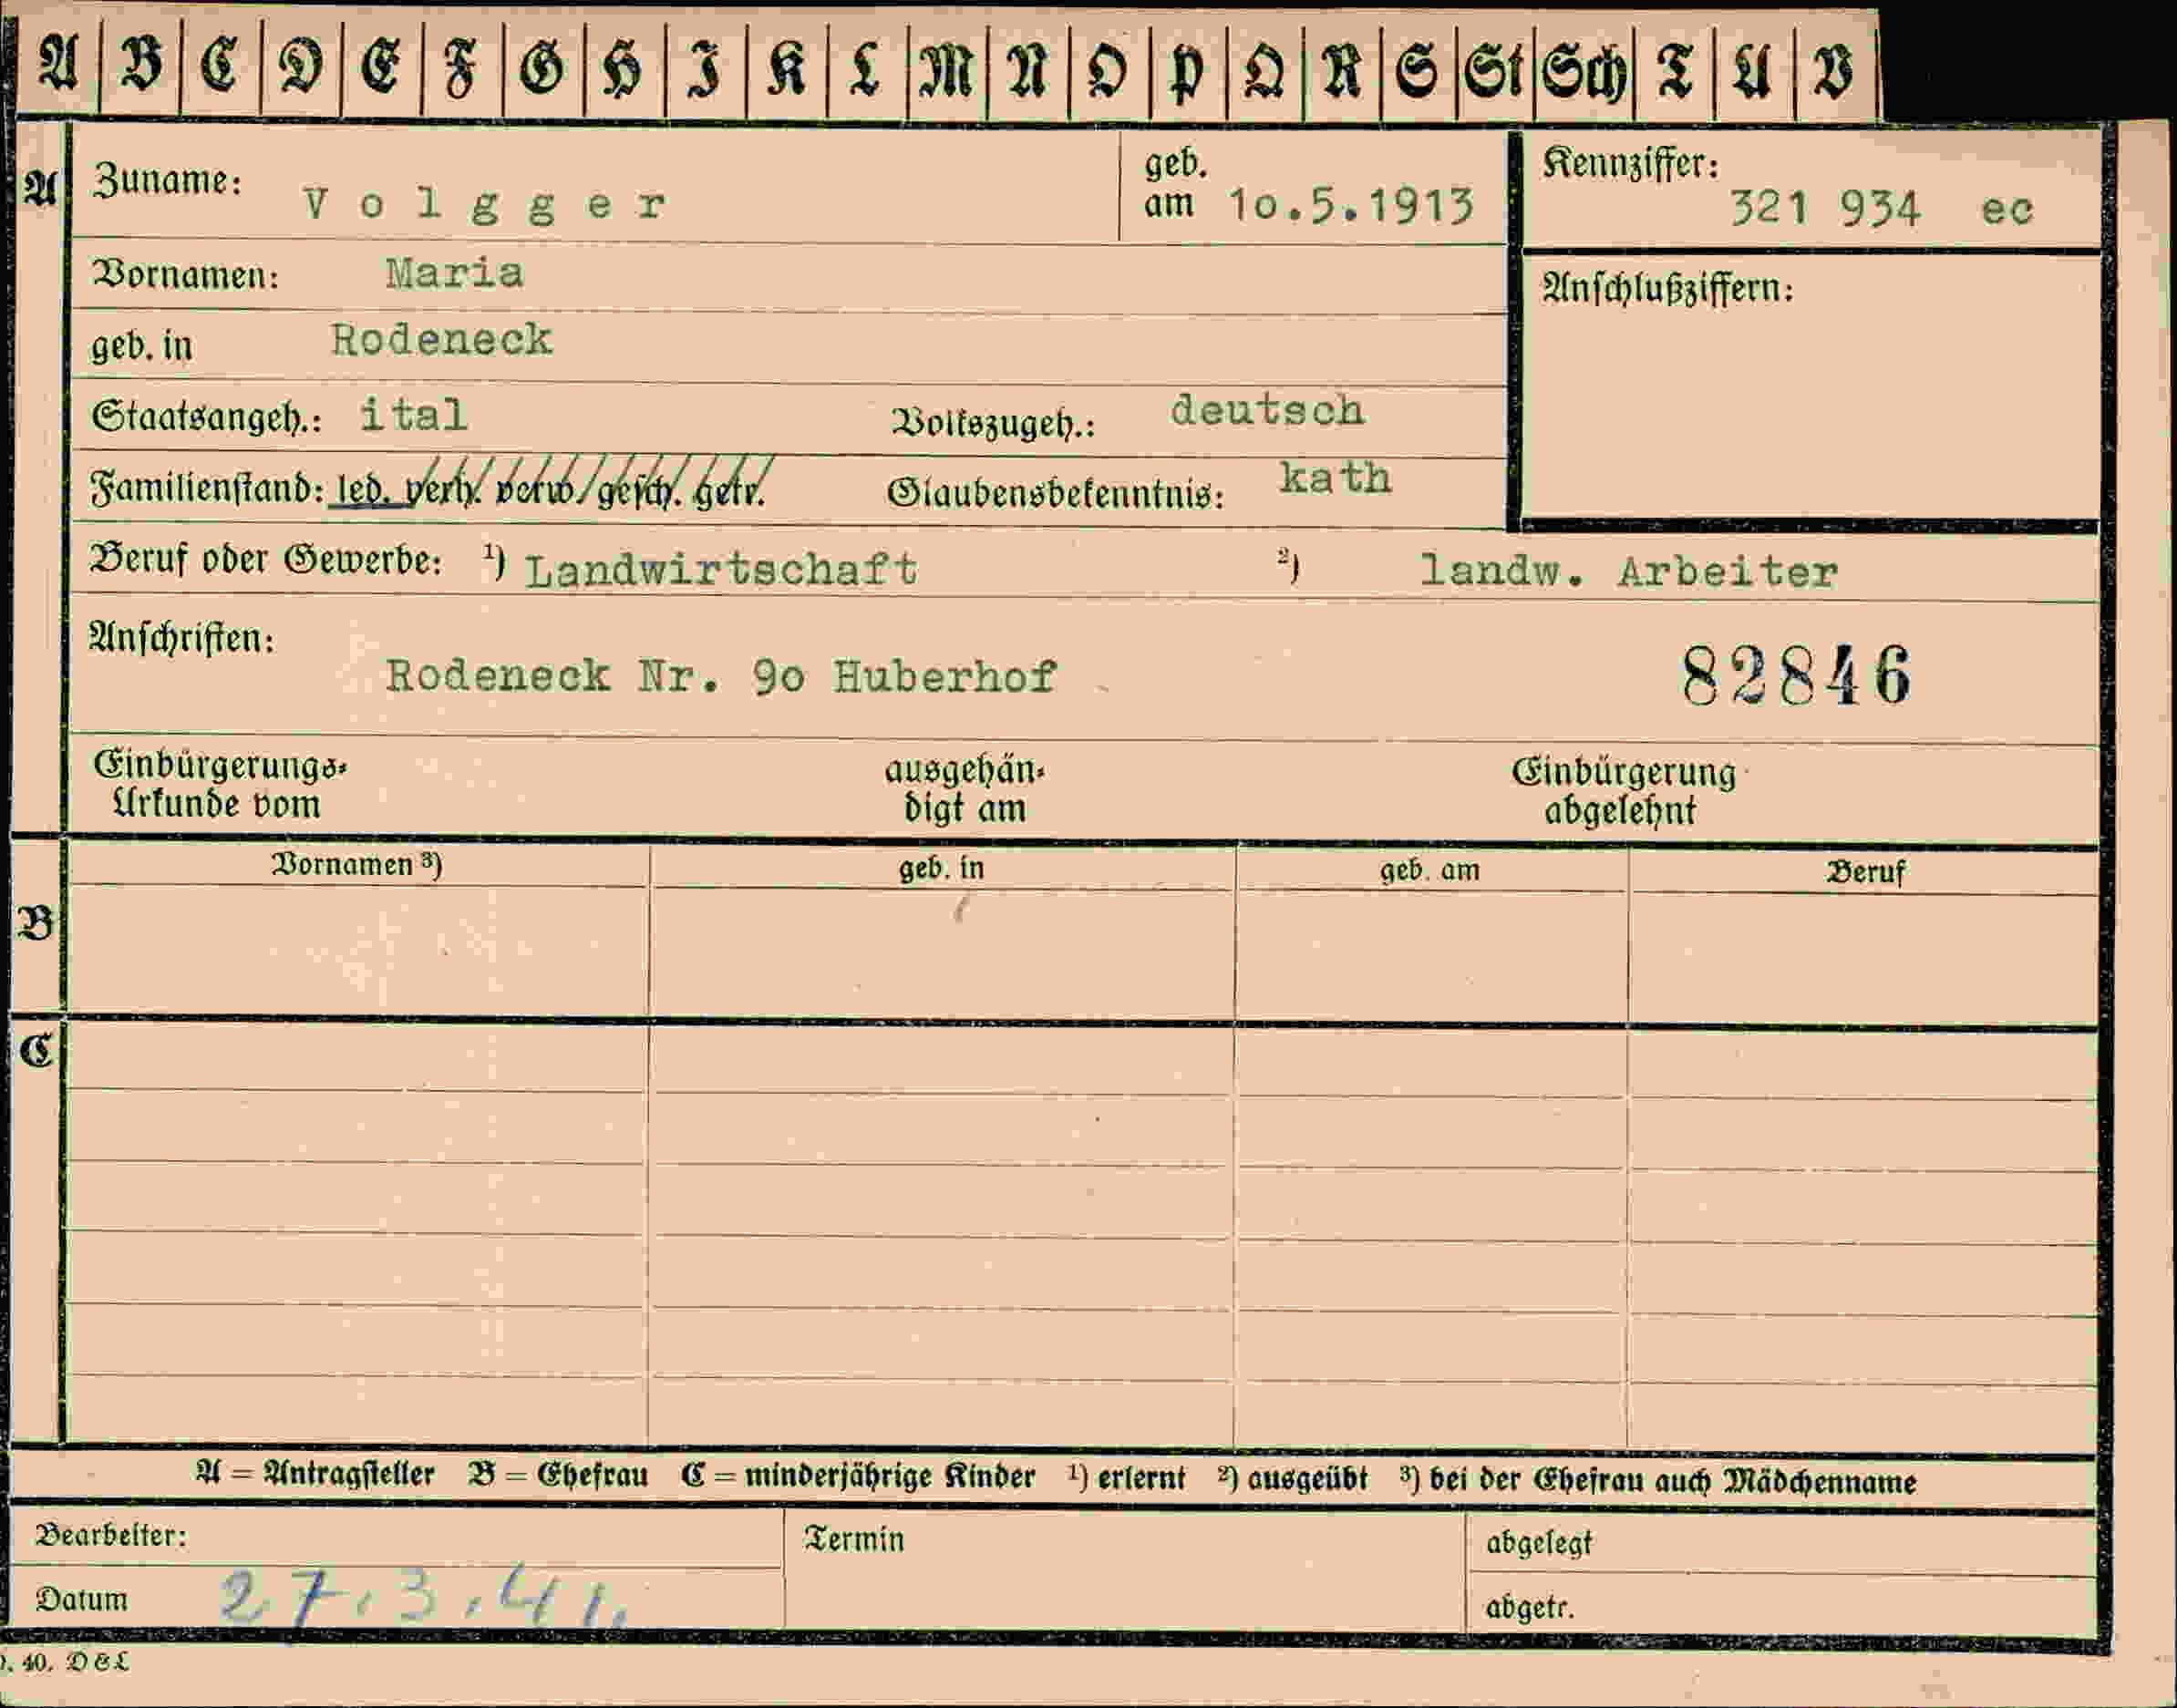 A B C D E F G H I K L M N O P Q R S St Sch T U V
A Zuname: Volgger geb. am 10.5.1913 Kennziffer: 321 934 ec
Vornamen: Maria Anschlußziffern:
geb. in Rodeneck
Staatsangeh.: ital Volkszugeh.: deutsch
Familienstand: led. verh. verw. gesch. getr. Glaubensbekenntnis: kath
Beruf oder Gewerbe: ¹) Landwirtschaft ²) landw. Arbeiter
Anschriften:
Rodeneck Nr. 90 Huberhof 82846
Einbürgerungs- ausgehän- Einbürgerung
Urkunde vom digt am abgelehnt
Vornamen ³) geb. in geb. am Beruf
B
C
A = Antragsteller B = Ehefrau C = minderjährige Kinder ¹) erlernt ²) ausgeübt ³) bei der Ehefrau auch Mädchenname
Bearbeiter: Termin abgelegt
Datum 27.3.41. abgetr.
40. D&L